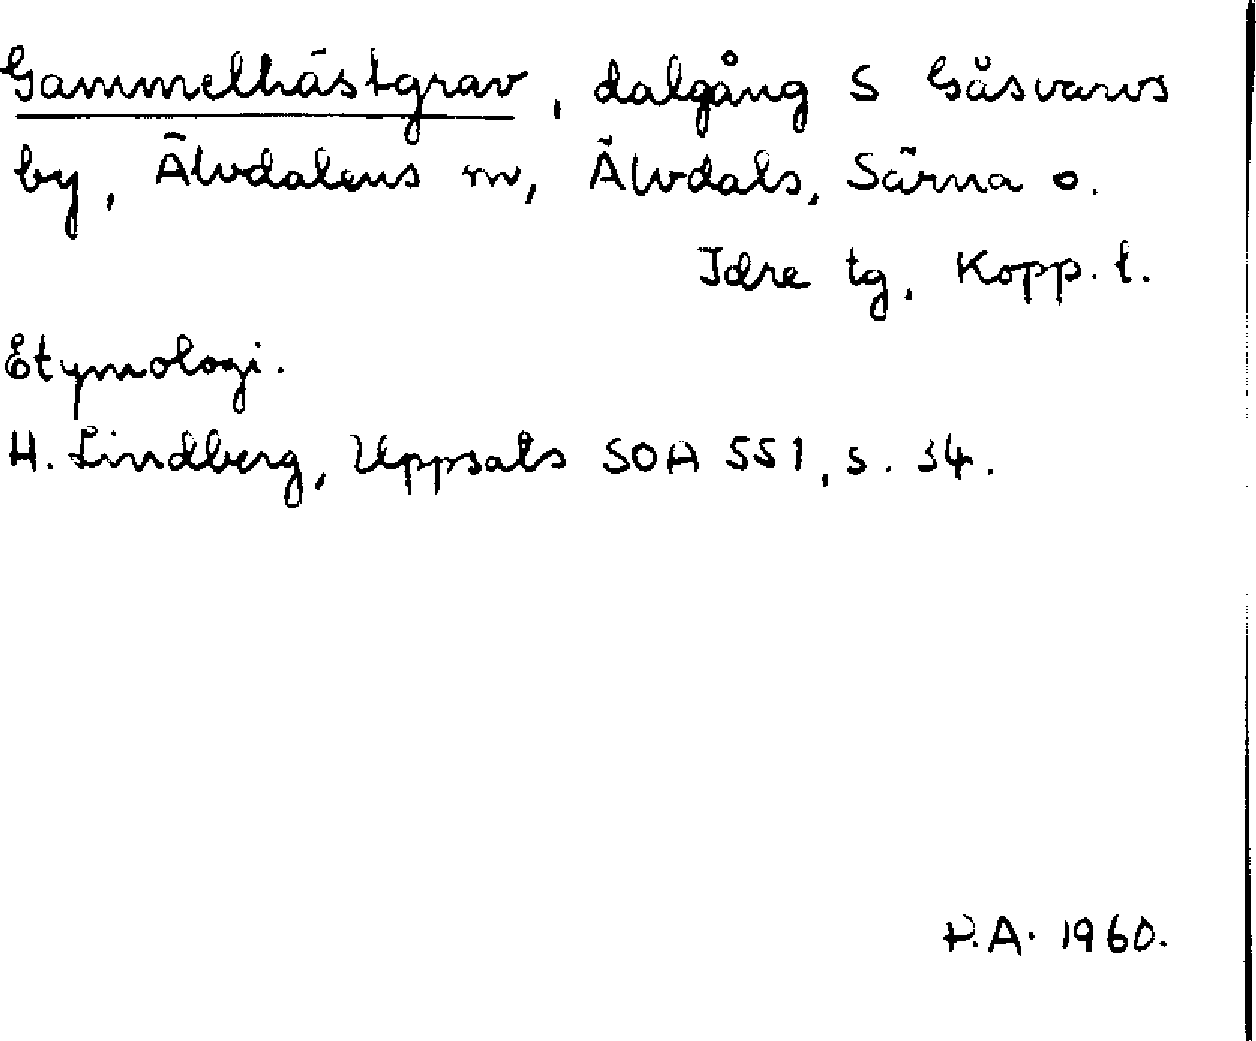 Gammelhästgrav, dalgång S Gåsvarvs
by, Älvdalens sn, Älvdals, Särna o.
Idre tg, Kopp. l.
Etymologi.
H. Lindberg, Uppsala SOA 551, s. 34.
P.A. 1960.